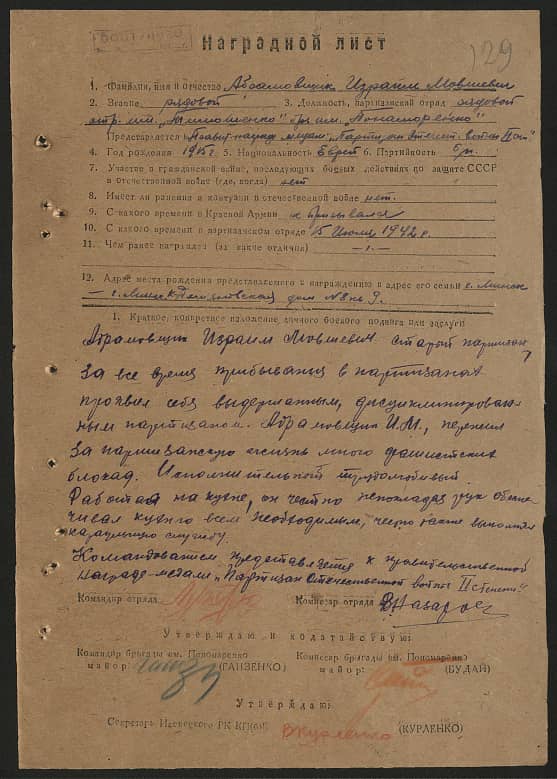 129
Наградной лист
1. Фамилия, имя и отчество Абрамовщик Израил Мовшевич
2. Звание рядовой 3. Должность, партизанский отряд рядовой
отр. им. "Тимошенко" бр. им. "Пономаренко"
Представляется к правит. награде медали "Партизан Отечест. войны II ст."
4. Год рождения 5. Национальность Еврей 6. Партийность б/п.
7. Участие в гражданской войне, последующих боевых действиях по защите СССР
и отечественной войне (где, когда) нет
8. Имеет ли ранения и контузии в отечественной войне нет.
9. С какого времени в Красной Армии не призывался
10. С какого времени в партизанском отряде 5 июля 1942 г.
11. Чем ранее награжден (за какие отличия) —
12. Адрес места рождения представляемого к награждению и адрес его семьи г. Минск
г. Минск дом №8 кв 9.
1. Краткое, конкретное изложение личного боевого подвига или заслуги
Абрамовщик Израил Мовшевич старой партизан,
За все время прибывания в партизанах
проявил себя выдержанным, дисциплинирован-
ным партизаном. Абрамовщик И.М., пережил
за партизанскую жизнь много фашистских
блокад. Исполнительной трудолюбивый.
Работая на кухне, он честно непокладая рук обеспе-
чивал кухню всем необходимым, честно также выполнял
караульную службу.
Командованием представляется к правительственной
награде-медали "Партизан Отечественной войны II степени"
Командир отряда Комиссар отряда В. Назаров
Утверждаю и ходатайствую:
Командир бригады им. Пономаренко Комиссар бригады им. Пономаренко
майор (ГАНЗЕНКО) майор: (БУДАЙ)
Утверждаю:
Секретарь Ивенецкого РК КП(б)Б В Курленко (КУРЛЕНКО)